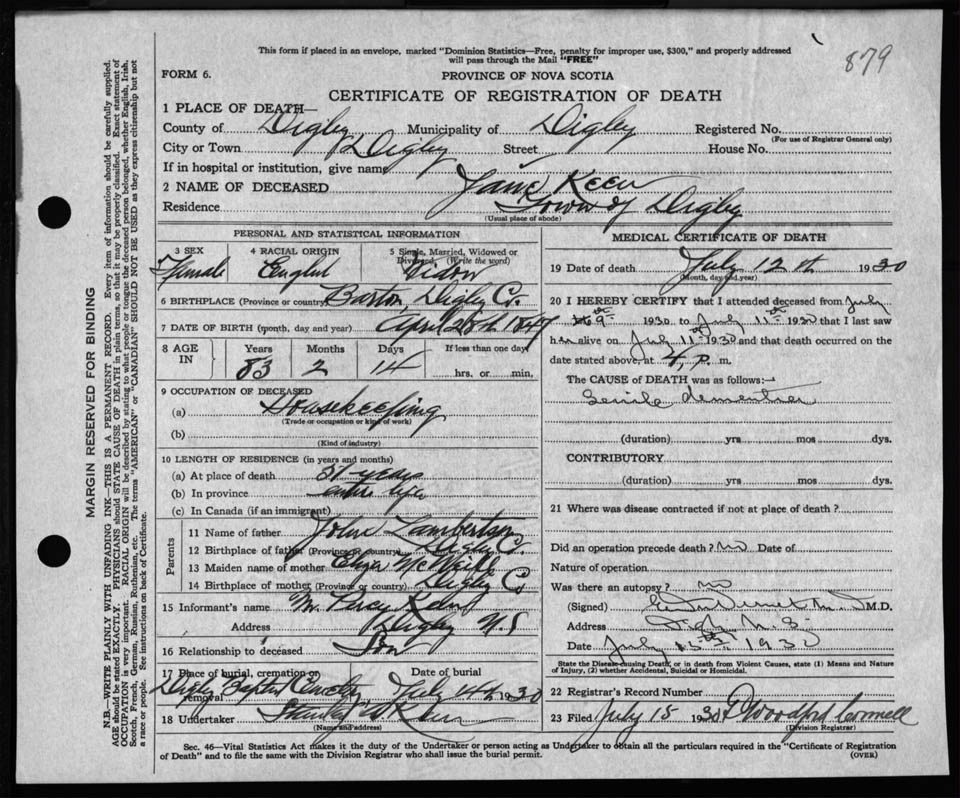 879
This form if placed in an envelope, marked "Dominion Statistics—Free, penalty for improper use, $300," and properly addressed
will pass through the Mail "FREE"
FORM 6.
PROVINCE OF NOVA SCOTIA
CERTIFICATE OF REGISTRATION OF DEATH
1 PLACE OF DEATH—
County of Digby Municipality of Digby Registered No.
(For use of Registrar General only)
City or Town Digby Street House No.
If in hospital or institution, give name
2 NAME OF DECEASED Jane Keen
Residence Town of Digby
(Usual place of abode)
PERSONAL AND STATISTICAL INFORMATION
3 SEX 4 RACIAL ORIGIN 5 Single, Married, Widowed or
Divorced (Write the word)
Female English Widow
6 BIRTHPLACE (Province or country) Barton Digby Co.
7 DATE OF BIRTH (month, day and year) April 28th 1847
8 AGE IN Years Months Days If less than one day
83 2 14 hrs. or min.
9 OCCUPATION OF DECEASED
(a) Housekeeping
(Trade or occupation or kind of work)
(b)
(Kind of industry)
10 LENGTH OF RESIDENCE (in years and months)
(a) At place of death 51 years
(b) In province entire life
(c) In Canada (if an immigrant)
Parents
11 Name of father John Lambertson
12 Birthplace of father (Province or country) Digby Co.
13 Maiden name of mother Eliza
14 Birthplace of mother (Province or country) Digby Co
15 Informant's name Mr. Percy Keen
Address Digby N.S
16 Relationship to deceased Son
17 Place of burial, cremation or Date of burial
removal Digby Baptist Cemetery July 14th 1930
18 Undertaker Keen
(Name and address)
MEDICAL CERTIFICATE OF DEATH
19 Date of death July 12th 1930
(Month, day and year)
20 I HEREBY CERTIFY that I attended deceased from July
9th 1930 to July 11th 1930 that I last saw
her alive on July 11th 1930 and that death occurred on the
date stated above at 4, p. m.
The CAUSE of DEATH was as follows:—
Senile dementia
(duration) yrs mos dys.
CONTRIBUTORY
(duration) yrs mos dys.
21 Where was disease contracted if not at place of death?
Did an operation precede death? no Date of
Nature of operation
Was there an autopsy? no
(Signed) M.D.
Address Digby N.S.
Date July 15th 1930
State the Disease causing Death, or in death from Violent Causes, state (1) Means and Nature
of Injury, (2) whether Accidental, Suicidal or Homicidal.
22 Registrar's Record Number
23 Filed July 15 1930
(Division Registrar)
Sec. 46—Vital Statistics Act makes it the duty of the Undertaker or person acting as Undertaker to obtain all the particulars required in the "Certificate of Registration
of Death" and to file the same with the Division Registrar who shall issue the burial permit.
(OVER)
MARGIN RESERVED FOR BINDING
N.B.—WRITE PLAINLY WITH UNFADING INK—THIS IS A PERMANENT RECORD. Every item of information should be carefully supplied.
AGE should be stated EXACTLY. PHYSICIANS should STATE CAUSE OF DEATH in plain terms, so that it may be properly classified. Exact statement of
OCCUPATION is very important. RACIAL ORIGIN will be described by stating to what people or tongue the deceased person belonged, whether English, Irish,
Scotch, French, German, Russian, Ruthenian, etc. The terms "AMERICAN" or "CANADIAN" SHOULD NOT BE USED as they express citizenship but not
a race or people. See instructions on back of Certificate.